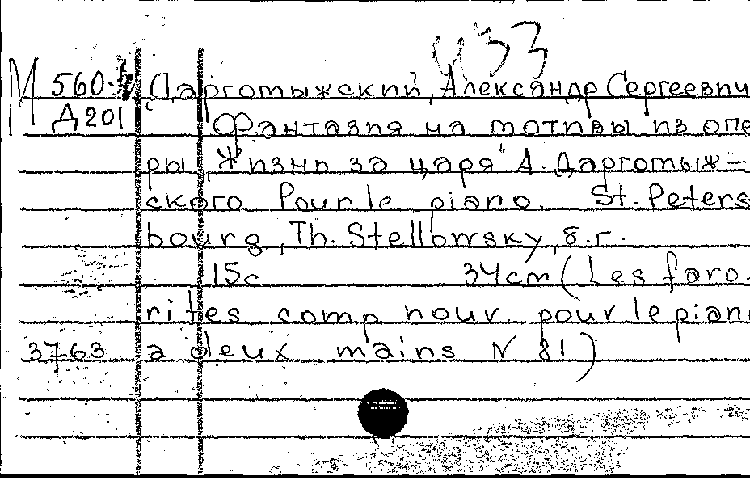 433
М 560-4 Даргомыжский, Александр Сергеевич
Д 201 Фантазия на мотивы из опе
ры "Жизнь за царя" А. Даргомыж-
ского Pour le piano. St. Peters
bourg, Th. Stellowsky, б.г.
15с 34cm (Les favo-
rites comp nouv. pour le pian
3763 a deux mains N 81)